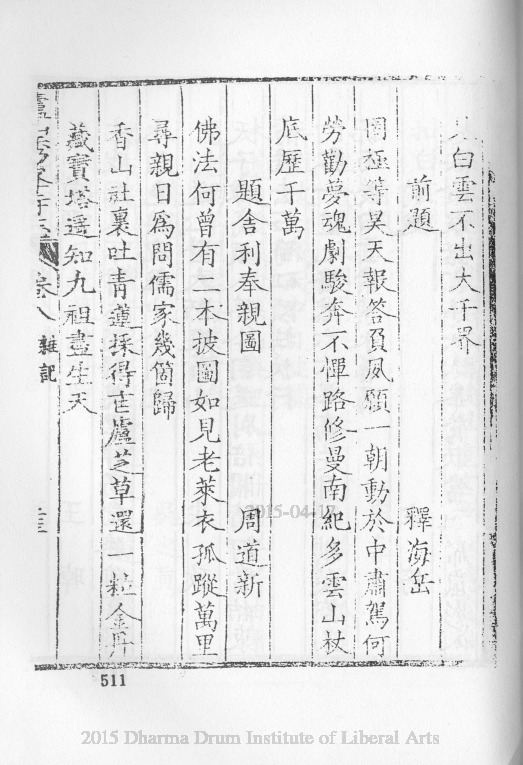 白雲不出大千界
前題　釋海岳
罔極等昊天報答負夙願一朝動於中肅駕何
勞勸夢魂劇駿奔不憚路修曼南紀多雲山杖
底歷千萬
題舍利奉親圖　周道新
佛法何曾有二本披圖如見老萊衣孤蹤萬里
尋親日為問儒家幾箇歸
香山社裏吐青蓮採得匡廬芝草還一粒金丹
藏寶塔遥知九祖盡生天
卷八　雜記
511
2015-04-17
2015 Dharma Drum Institute of Liberal Arts